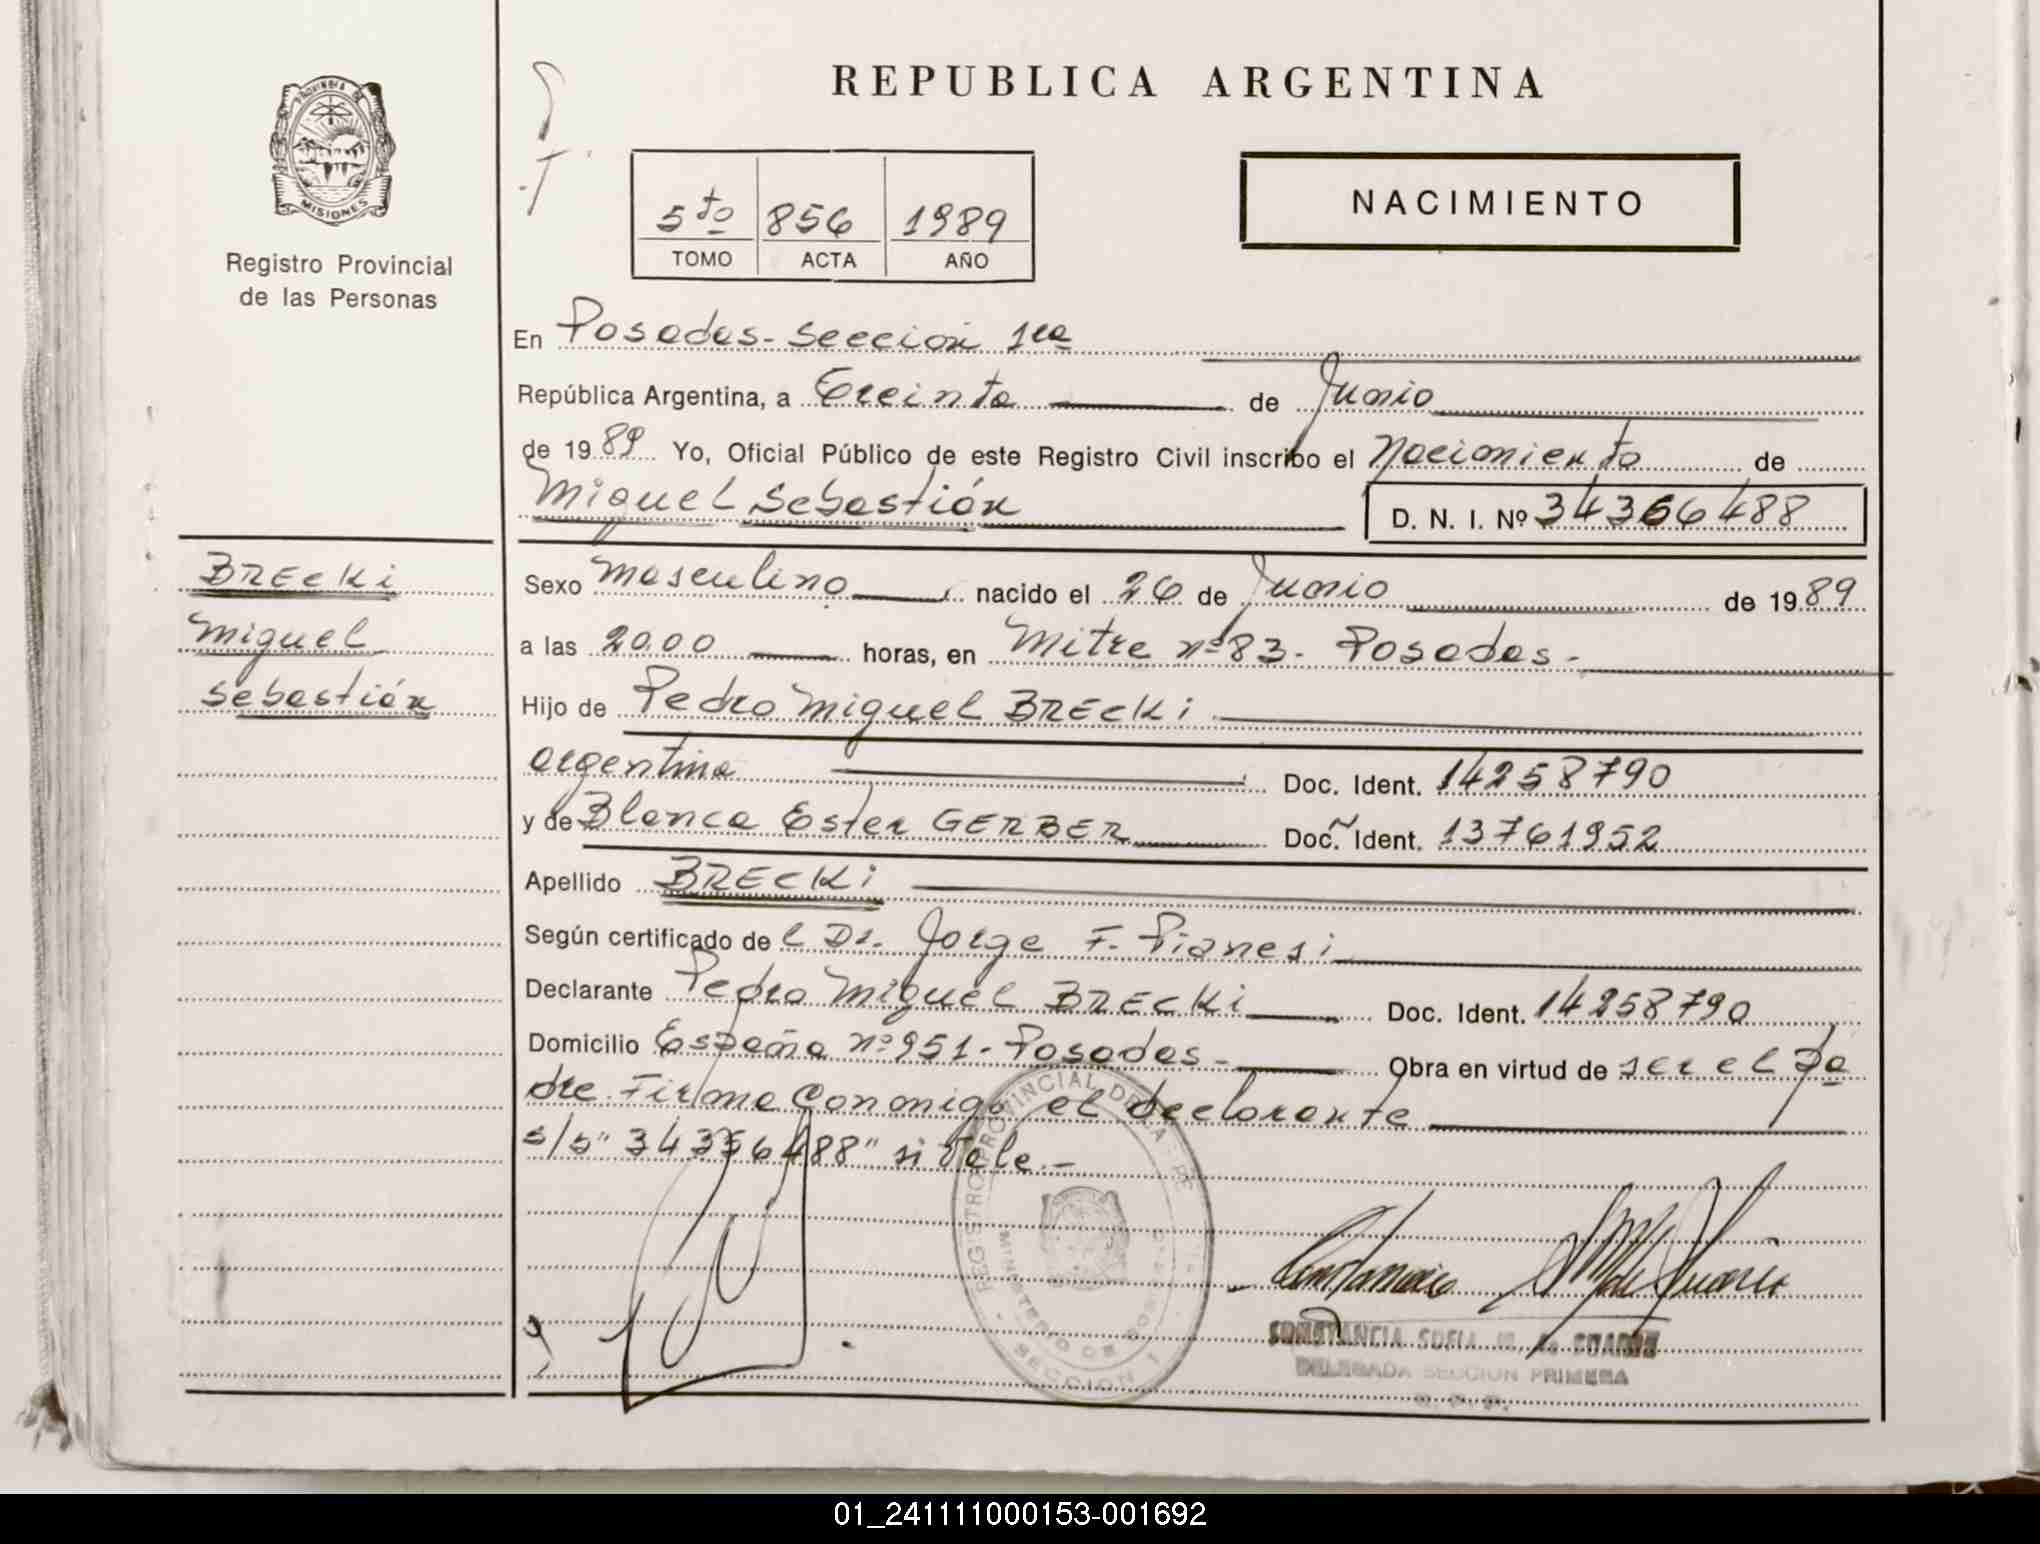 REPUBLICA ARGENTINA
PROVINCIA DE
MISIONES
Registro Provincial
de las Personas
5to 856 1989
TOMO ACTA AÑO
NACIMIENTO
En Posadas - Sección 1ra
República Argentina, a Treinta de Junio
de 1989 Yo, Oficial Público de este Registro Civil inscribo el Nacimiento de
Miguel Sebastián D. N. I. Nº 34366488
BRECKi
Miguel
Sebastián
Sexo Masculino nacido el 26 de Junio de 1989
a las 20.00 horas, en Mitre nº 83 - Posadas -
Hijo de Pedro Miguel BRECKi
argentino Doc. Ident. 14258790
y de Blanca Ester GERBER Doc. Ident. 13761952
Apellido BRECKi
Según certificado de l Dr. Jorge F. Pianesi
Declarante Pedro Miguel BRECKi Doc. Ident. 14258790
Domicilio España nº 951 - Posadas - Obra en virtud de ser el pa
dre. Firma Conmigo el declarante
s/b "34366488" si Vale. -
REGISTRO PROVINCIAL DE LA
MINISTERIO DE GOBIERNO
SECCION 1
CONSTANCIA SOFIA M. de SUAREZ
DELEGADA SECCION PRIMERA
R. P. P.
01_241111000153-001692